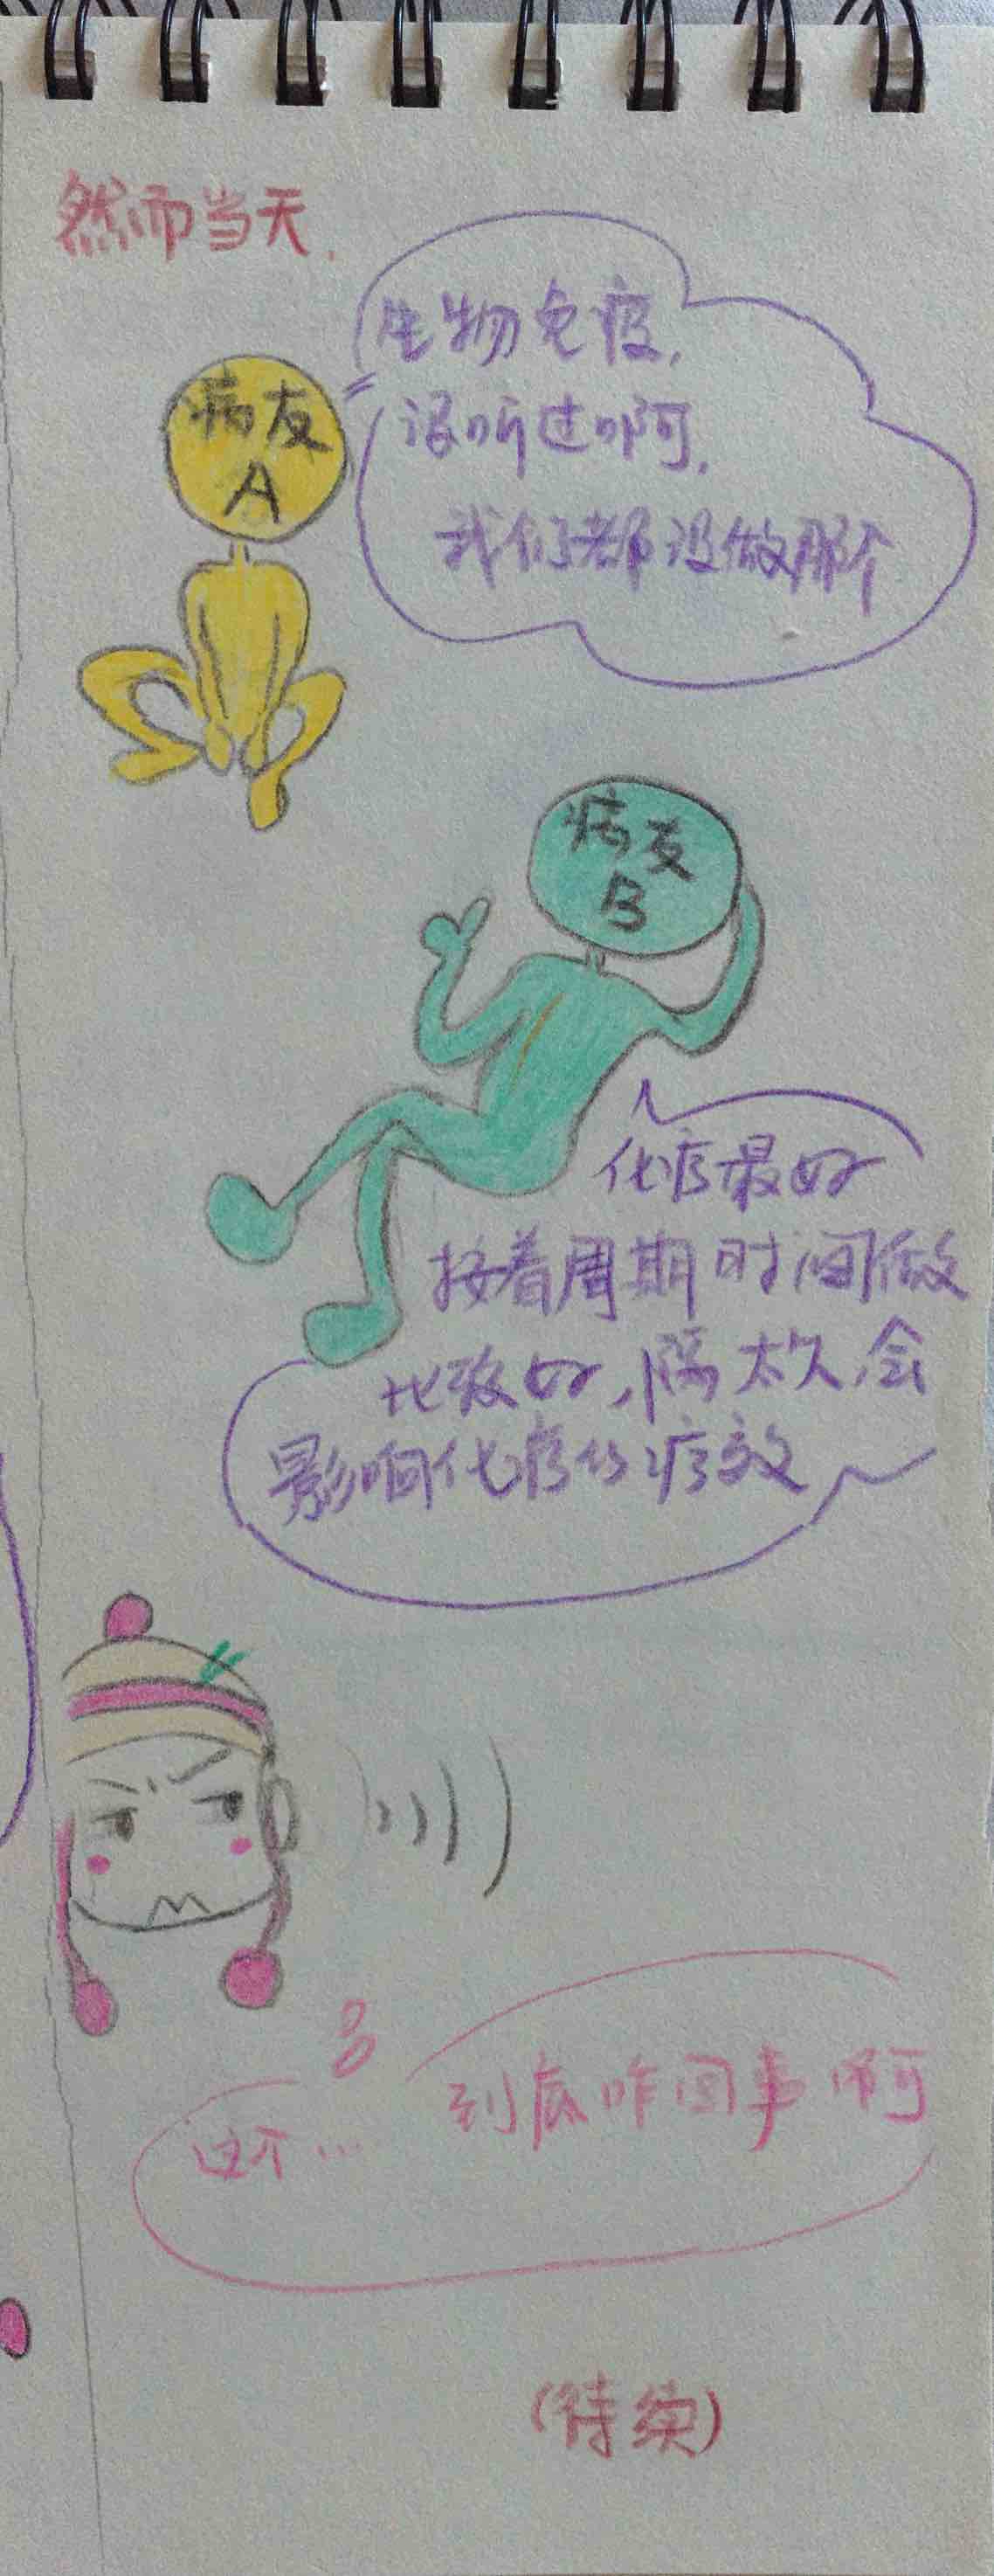 然而当天.
病友
A
生物免疫,
没听过啊,
我们都没做那个
病友
B
化疗最好
按着周期时间做
比较好,隔太久,会
影响化疗的疗效
这个...
到底咋回事啊
(待续)